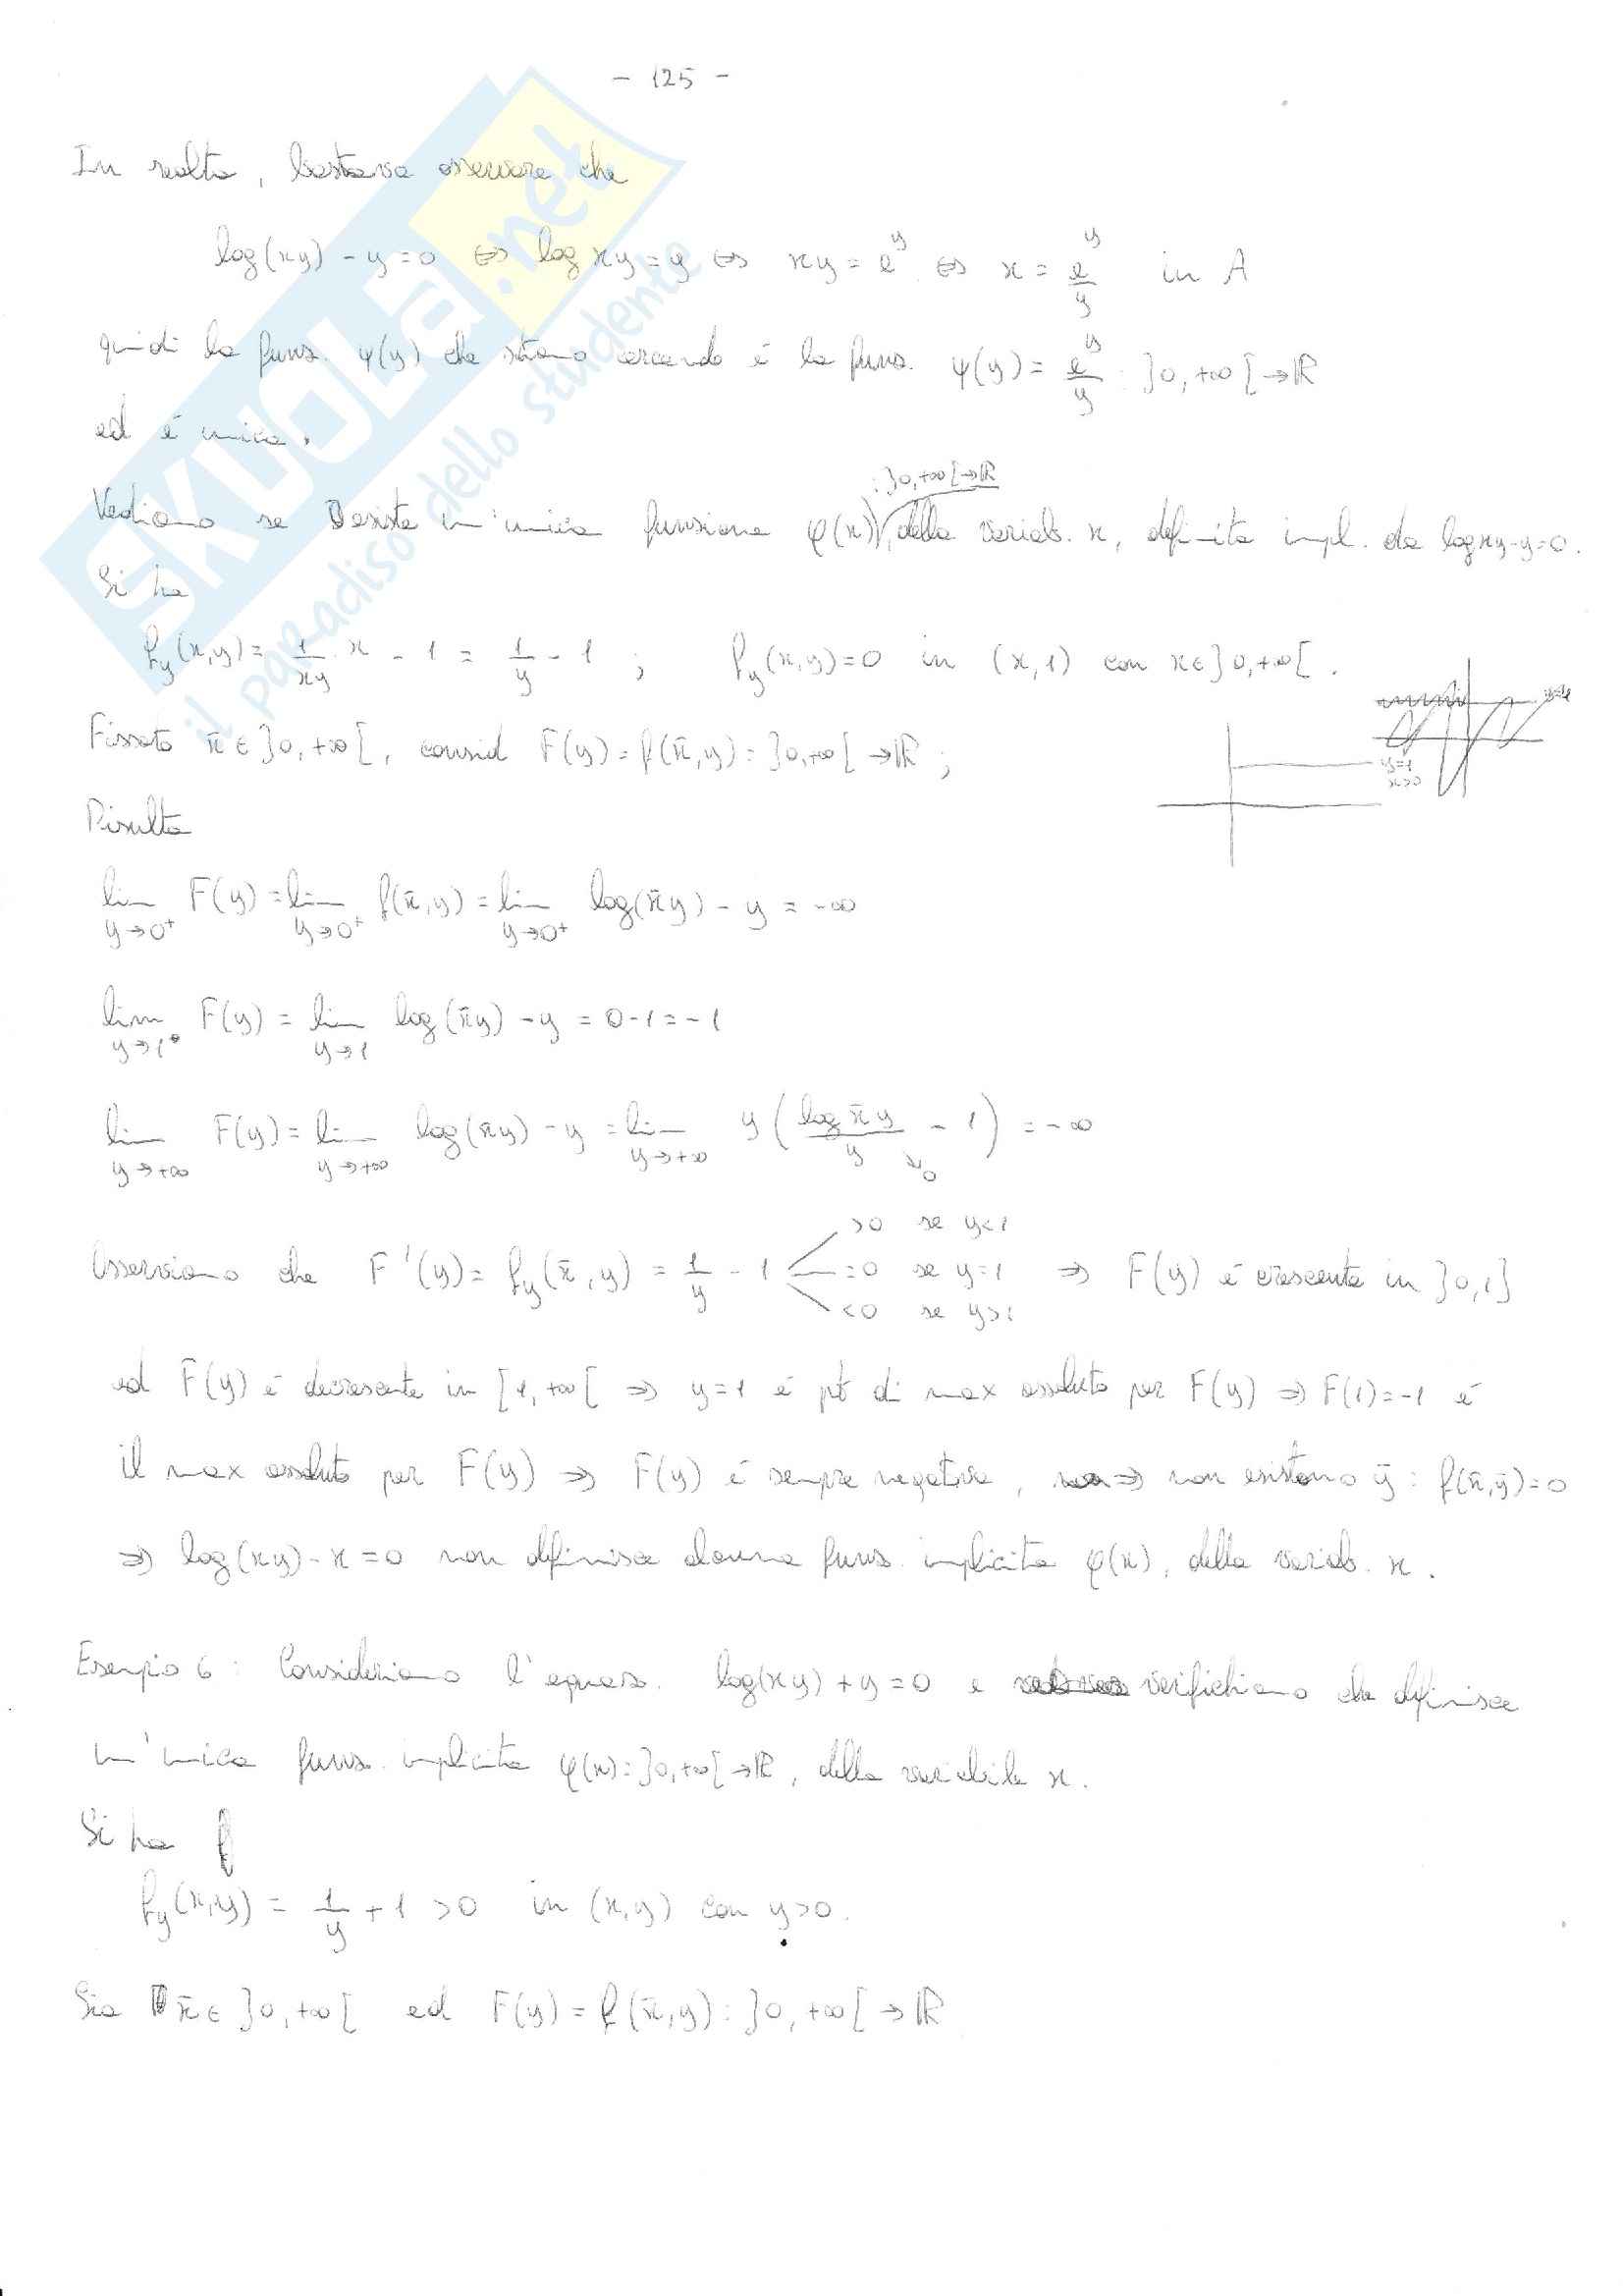 - 125 -
In realtà, bastava osservare che
log(xy) - y = 0 ⇔ log xy = y ⇔ xy = e^y ⇔ x = e^y/y in A
quindi la funz. ψ(y) che stiamo cercando è la funz. ψ(y) = e^y/y : ]0,+∞[ → ℝ
ed è unica.
:]0,+∞[→ℝ
Vediamo se esiste un'unica funzione φ(x), della variab. x, definita impl. da log xy - y = 0.
Si ha
f_y(x,y) = 1/xy · x - 1 = 1/y - 1 ; f_y(x,y) = 0 in (x,1) con x ∈ ]0,+∞[ .
y=1
x>0
Fissato x̄ ∈ ]0,+∞[, consid F(y) = f(x̄,y) : ]0,+∞[ → ℝ ;
Risulta
lim y→0⁺ F(y) = lim y→0⁺ f(x̄,y) = lim y→0⁺ log(x̄y) - y = -∞
lim y→1 F(y) = lim y→1 log(x̄y) - y = 0-1 = -1
lim y→+∞ F(y) = lim y→+∞ log(x̄y) - y = lim y→+∞ y ( log x̄y / y - 1 ) = -∞
↘0
>0 se y<1
Osserviamo che F'(y) = f_y(x̄,y) = 1/y - 1 =0 se y=1 ⇒ F(y) è crescente in ]0,1]
<0 se y>1
ed F(y) è decrescente in [1,+∞[ ⇒ y=1 è pt di max assoluto per F(y) ⇒ F(1)=-1 è
il max assoluto per F(y) ⇒ F(y) è sempre negativa, ⇒ non esistono ȳ : f(x̄,ȳ)=0
⇒ log(xy) - x = 0 non definisce alcuna funz. implicita φ(x), della variab. x.
Esempio 6 : Consideriamo l'equaz. log(xy) + y = 0 e verifichiamo che definisce
un'unica funz. implicita φ(x) : ]0,+∞[ → ℝ, della variabile x.
Si ha f
f_y(x,y) = 1/y + 1 > 0 in (x,y) con y>0.
Sia x̄ ∈ ]0,+∞[ ed F(y) = f(x̄,y) : ]0,+∞[ → ℝ
SKUOLA.net
il paradiso dello studente